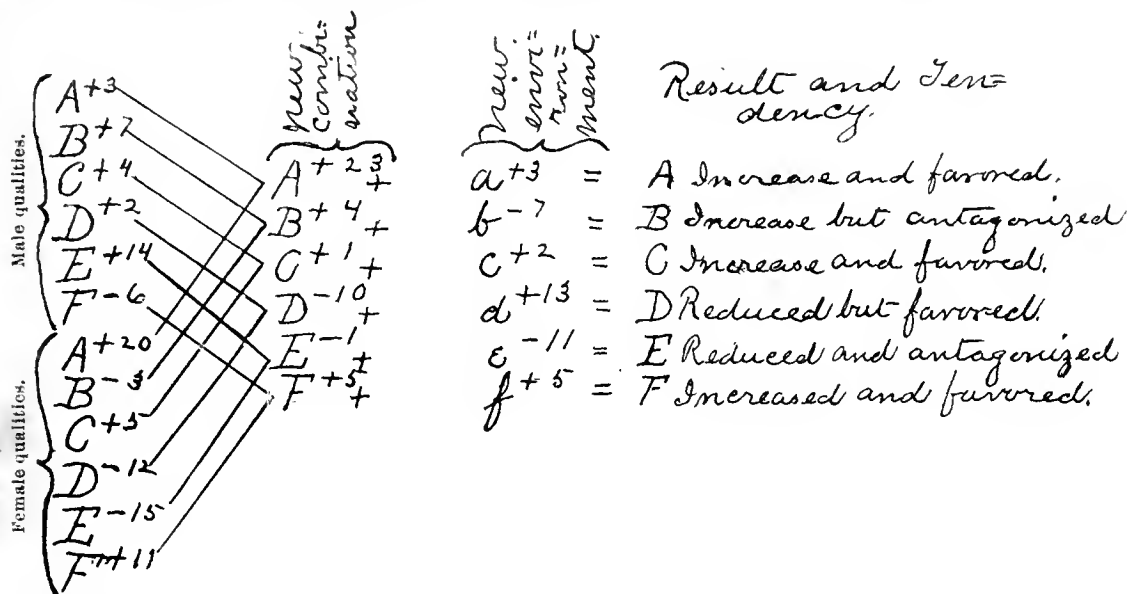 Male qualities.
A+3
B+7
C+4
D+2
E+14
F-6
Female qualities.
A+20
B-3
C+5
D-12
E-15
F+11
New
combi=
nation
A+23 +
B+4 +
C+1 +
D-10 +
E-1 +
F+5 +
New
envi=
ron=
ment.
Result and Ten=
dency.
a+3 = A Increase and favored.
b-7 = B Increase but antagonized
c+2 = C Increase and favored.
d+13 = D Reduced but favored.
e-11 = E Reduced and antagonized
f+5 = F Increased and favored.